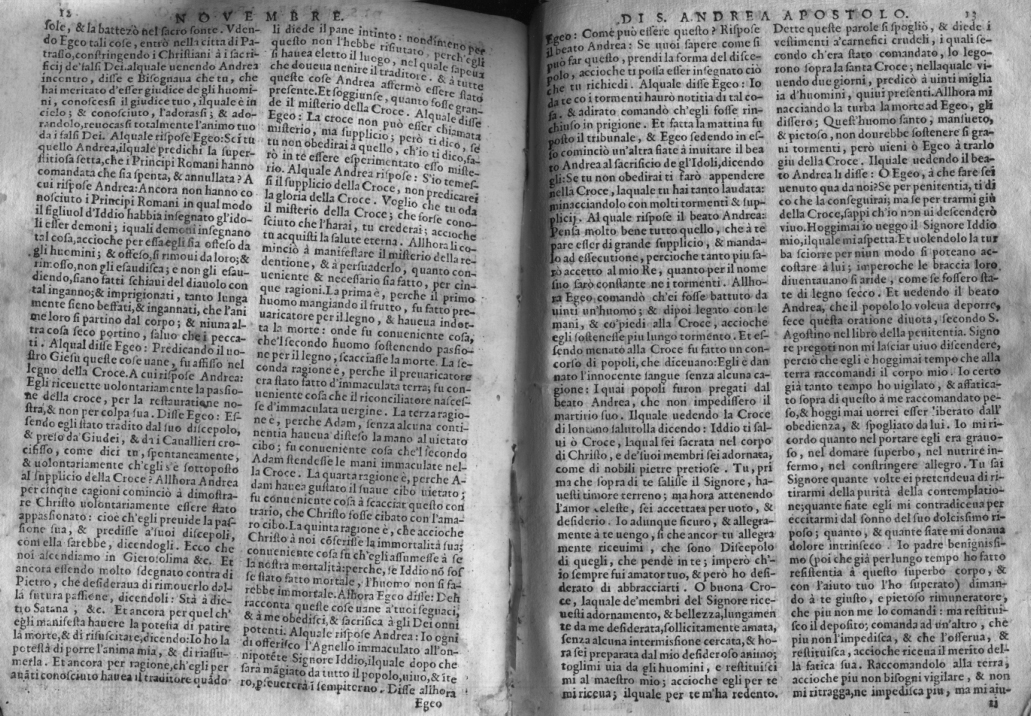 12
NOVEMBRE.
sole, & la battezò nel sacro fonte. Vden-
do Egeo tali cose, entrò nella città di Pa-
trasso, constringendo i Christiani à i sacri-
ficij de'falsi Dei. Alquale uenendo Andrea
incontro, disse è Bisognaua che tu, che
hai meritato d'esser giudice de gli huomi-
ni, conoscessi il giudice tuo, ilquale è in
cielo; & conosciuto, l'adorassi; & ado-
randolo, reuocassi totalmente l'animo tuo
da i falsi Dei. Alquale rispose Egeo: Sei tu
quello Andrea, ilquale predichi la super-
stitiosa setta, che i Principi Romani hanno
comandata che sia spenta, & annullata? A
cui rispose Andrea: Ancora non hanno co
nosciuto i Principi Romani in qual modo
il figliuol d'Iddio habbia insegnato gl'ido-
li esser demoni; iquali demoni insegnano
tal cosa, accioche per essa egli sia osteso da
gli huomini; & offeso, si rimoui da loro; &
rimosso, non gli esaudisca; e non gli esau-
diendo, siano fatti schiaui del diauolo con
tal inganno; & imprigionati, tanto lunga
mente sieno beffati, & ingannati, che l'ani
me loro si partino dal corpo; & niuna al-
tra cosa seco portino, saluo che i pecca-
ti. Alqual disse Egeo: Predicando il uo-
stro Giesu queste cose uane, fu affisso nel
legno della Croce. A cui rispose Andrea:
Egli riceuette uolontariamente la passio-
ne della croce, per la restauratione no-
stra, & non per colpa sua. Disse Egeo: Es-
sendo egli stato tradito dal suo discepolo,
& preso da Giudei, & da i Canallieri cro-
cifisso, come dici tu, spontaneamente,
& uolontariamente ch'egli s'è sottoposto
al supplicio della Croce? Allhora Andrea
per cinque cagioni cominciò à dimostra-
re Christo uolontariamente essere stato
appassionato: cioè ch'egli preuide la pas-
sione sua, & predisse a'suoi discepoli,
com'ella sarebbe, dicendogli. Ecco che
noi ascendiamo in Gierosolima &c. Et
ancora essendo molto sdegnato contra di
Pietro, che desideraua di rimouerlo dal-
la futura passione, dicendoli: Stà à die-
tro Satana, &c. Et ancora per quel ch'
egli manifesta hauere la potestà di patire
la morte, & di risuscitare, dicendo: Io hò la
potestà di porre l'anima mia, & di riassu-
merla. Et ancora per ragione, ch'egli per
auanti conosciuto haueua il traditore, quādo
li diede il pane intinto: nondimeno per
questo non l'hebbe risiutato, perch'egli
si haueua eletto il luogo, nel quale sapeua
che doueua uenire il traditore. & à tutte
queste cose Andrea affermò essere stato
presente. Et soggiunse, quanto fosse gran-
de il misterio della Croce. Alquale disse
Egeo: La croce non può esser chiamata
misterio, ma supplicio; però ti dico, se
tu non obedirai à quello, ch'io ti dico, fa-
rò in te essere esperimentato esso miste-
rio. Alquale Andrea rispose: S'io temes-
si il supplicio della Croce, non predicarei
la gloria della Croce. Voglio che tu oda
il misterio della Croce; che forse cono-
sciuto che l'harai, tu crederai; accioche
tu acquisti la salute eterna. Allhora li co-
minciò à manifestare il misterio della re-
dentione, & à persuaderlo, quanto con-
ueniente & necessario sia fatto, per cin-
que ragioni. La prima è, perche il primo
huomo mangiando il frutto, fu fatto pre-
uaricatore per il legno, & haueua indot-
ta la morte: onde fu conueniente cosa,
che'l secondo huomo sostenendo passio-
ne per il legno, scacciasse la morte. La se-
conda ragione è, perche il preuaricatore
era stato fatto d'immaculata terra; fu con-
ueniente cosa che il riconciliatore nascess-
se d'immaculata uergine. La terza ragio-
ne è, perche Adam, senza alcuna conti-
nentia haueua disteso la mano al uietato
cibo; fu conueniente cosa che'l secondo
Adam stendesse le mani immaculate nel-
la Croce. La quarta ragione è, perche A-
dam haueua gustato il suaue cibo uietato;
fu conueniente cosa à scacciar questo con
trario, che Christo fosse cibato con l'ama-
ro cibo. La quinta ragione è, che accioche
Christo à noi cōferisse la immortalità sua;
conueniente cosa fu ch'egli assumesse à se
la nostra mortalità: perche, se Iddio nō fos
se stato fatto mortale, l'huomo non si fa-
rebbe immortale. Allhora Egeo disse: Deh
racconta queste cose uane a'tuoi seguaci,
& à me obedisci, & sacrifica à gli Dei onni
potenti. Alquale rispose Andrea: Io ogni
dì offerisco l'Agnello immaculato all'on-
nipotēte Signore Iddio, ilquale dopo che
sarà magiato da tutto il popolo, uiuo, & ite
ro, perseuererà i sempiterno. Disse allhora
Egeo
DI S. ANDREA APOSTOLO.
13
Egeo: Come può essere questo? Rispose
il beato Andrea: Se uuoi sapere come si
può far questo, prendi la forma del disce-
polo, accioche ti possa esser insegnato ciò
che tu richiedi. Alquale disse Egeo: Io
da te co i tormenti haurò notitia di tal co-
sa. & adirato comandò ch'egli fosse rin-
chiuso in prigione. Et fatta la mattina fu
posto il tribunale, & Egeo sedendo in es-
so cominciò un'altra fiate à inuitare il bea
to Andrea al sacrificio de gl'Idoli, dicendo
gli: Se tu non obedirai ti farò appendere
nella Croce, laquale tu hai tanto laudata:
minacciandolo con molti tormenti & sup-
plicij. Al quale rispose il beato Andrea:
Pensa molto bene tutto quello, che à te
pare esser di grande supplicio, & manda-
lo ad essecutione, percioche tanto piu sa-
rò accetto al mio Re, quanto per il nome
suo sarò constante ne i tormenti. Allho-
ra Egeo comandò ch'ei fosse battuto da
uinti un'huomo; & dipoi legato con le
mani, & co'piedi alla Croce, accioche
egli sostenesse piu lungo tormento. Et es-
sendo menato alla Croce fu fatto un con-
corso di popoli, che diceuano: Egli è dan
nato l'innocente sangue senza alcuna ca-
gione: I quai popoli furon pregati dal
beato Andrea, che non impedissero il
martirio suo. Ilquale uedendo la Croce
di lontano salutolla dicendo: Iddio ti sal-
ui ò Croce, laqual sei sacrata nel corpo
di Christo, e de'suoi membri sei adornata,
come di nobili pietre pretiose. Tu, pri
ma che sopra di te salisse il Signore, ha-
uesti timore terreno; ma hora attenendo
l'amor celeste, sei accettata per uoto, &
desiderio. Io adunque sicuro, & allegra-
mente à te uengo, si che ancor tu allegra
mente riceuimi, che sono Discepolo
di quegli, che pende in te; imperò ch'-
io sempre fui amator tuo, & però ho desi-
derato di abbracciarti. O buona Cro-
ce, laquale de'membri del Signore rice-
uesti adornamento, & bellezza, lungamen
te da me desiderata, sollicitamente amata,
senza alcuna intermissione cercata, & ho-
ra sei preparata dal mio desideroso animo;
toglimi uia da gli huomini, e restituisci
mi al maestro mio; accioche egli per te
mi riceua; ilquale per te m'ha redento.
Dette queste parole si spogliò, & diede i
vestimenti a'carnefici crudeli, i quali se-
condo ch'era stato comandato, lo lego-
rono sopra la santa Croce; nellaquale vi-
uendo due giorni, predicò à uinti miglia
ia d'huomini, quiui presenti. Allhora mi
nacciando la turba la morte ad Egeo, gli
dissero; Quest'huomo santo, mansueto,
& pietoso, non dourebbe sostenere si gra-
ni tormenti, però uieni ò Egeo à trarlo
giu della Croce. Ilquale uedendo il bea-
to Andrea li disse: O Egeo, à che fare sei
uenuto qua da noi? Se per penitentia, ti di
co che la conseguirai; ma se per trarmi giù
della Croce, sappi ch'io non ui descenderò
viuo. Hoggimai io ueggo il Signore Iddio
mio, ilquale mi aspetta. Et uolendolo la tur
ba sciorre per niun modo si poteano ac-
costare à lui; imperoche le braccia loro
diuentauano si aride, come se fossero sta-
te di legno secco. Et uedendo il beato
Andrea, che il popolo lo voleua deporre,
fece questa oratione diuota, secondo S.
Agostino nel libro della penitentia. Signo
re pregoti non mi lasciar uiuo discendere,
perciò che egli è hoggimai tempo che alla
terra raccomandi il corpo mio. Io certo
già tanto tempo ho uigilato, & affatica-
to sopra di questo à me raccomandato pe-
so, & hoggi mai uorrei esser 'iberato dall'
obedienza, & spogliato da lui. Io mi ri-
cordo quanto nel portare egli era grauo-
so, nel domare superbo, nel nutrire in-
fermo, nel constringere allegro. Tu sai
Signore quante volte ei pretendeua di ri-
tirarmi della purità della contemplatio-
ne; quante fiate egli mi contradicena per
eccitarmi dal sonno del suo dolcissimo ri-
poso; quanto, & quante fiate mi donaua
dolore intrinseco. Io padre benignissi-
mo (poi che già per lungo tempo ho fatto
resistentia à questo superbo corpo, &
con l'aiuto tuo l'ho superato) diman-
do à te giusto, e pietoso rimuneratore,
che piu non me lo comandi: ma restitui-
sco il deposito; comanda ad un'altro, che
piu non l'impedisca, & che l'osserua, &
restituisca, accioche riceua il merito del-
la fatica sua. Raccomandolo alla terra,
accioche piu non bisogni vigilare, & non
mi ritragga, ne impedisca piu, ma mi aiu-